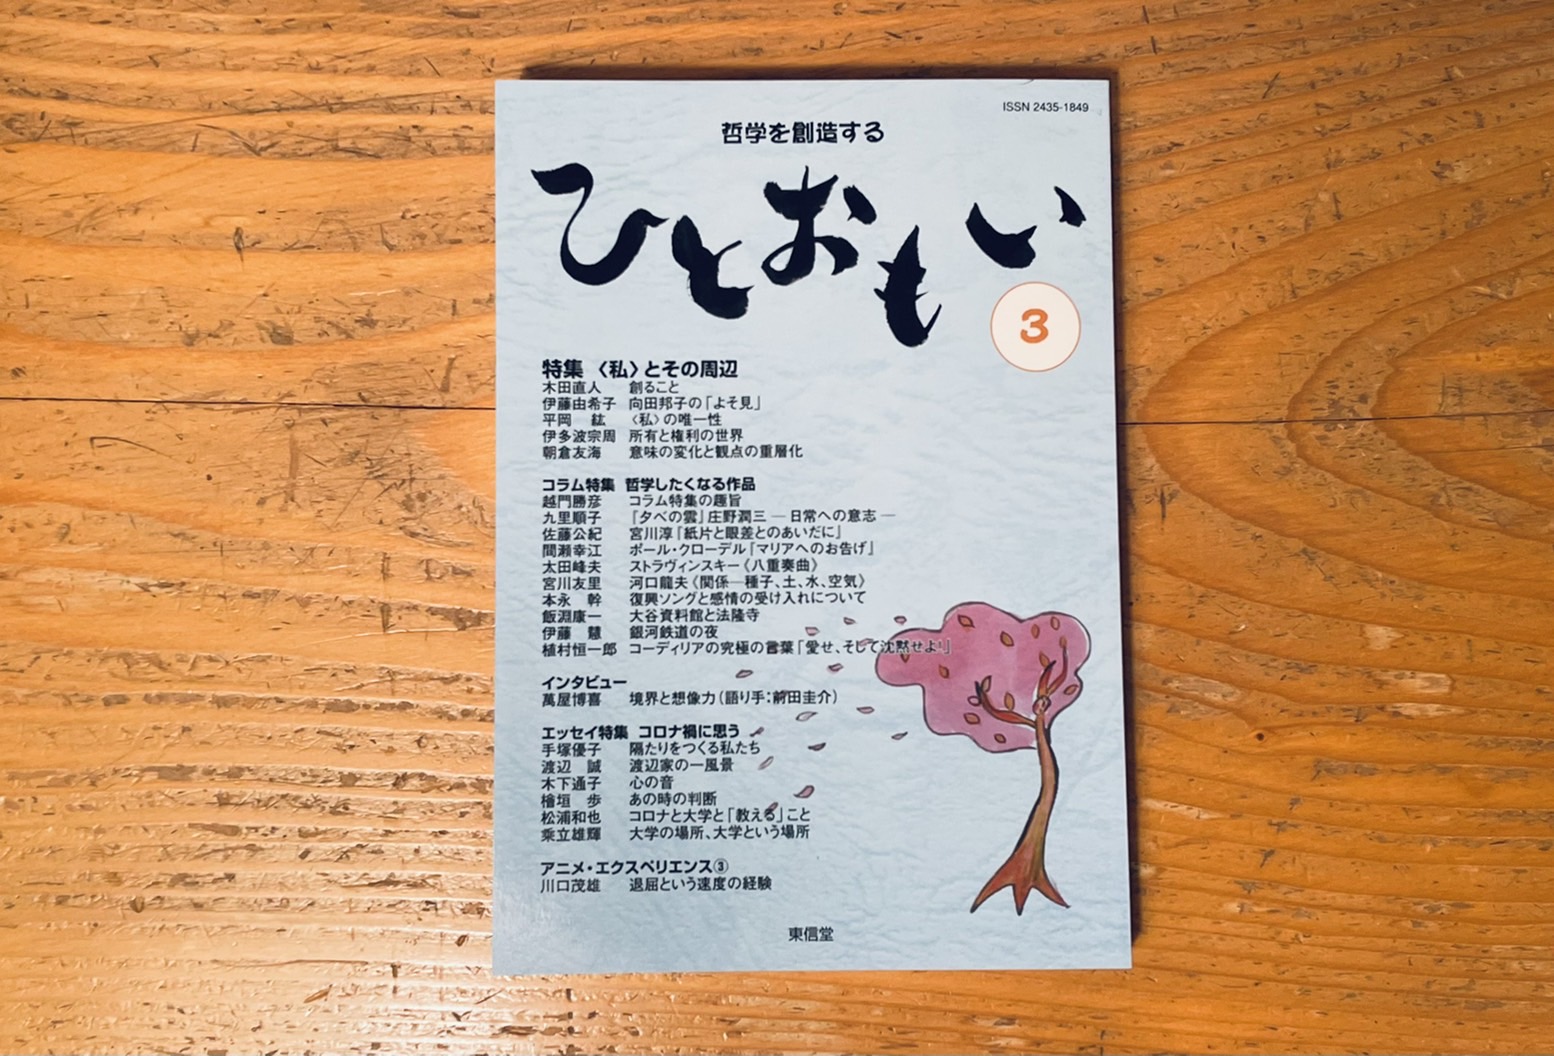 ISSN 2435-1849
哲学を創造する
ひとおもい
3
特集 〈私〉とその周辺
木田直人 創ること
伊藤由希子 向田邦子の「よそ見」
平岡 紘 〈私〉の唯一性
伊多波宗周 所有と権利の世界
朝倉友海 意味の変化と観点の重層化
コラム特集 哲学したくなる作品
越門勝彦 コラム特集の趣旨
九里順子 『夕べの雲』庄野潤三 ― 日常への意志 ―
佐藤公紀 宮川淳『紙片と眼差とのあいだに』
間瀬幸江 ポール・クローデル『マリアへのお告げ』
太田峰夫 ストラヴィンスキー《八重奏曲》
宮川友里 河口龍夫《関係―種子、土、水、空気》
本永 幹 復興ソングと感情の受け入れについて
飯淵康一 大谷資料館と法隆寺
伊藤 慧 銀河鉄道の夜
植村恒一郎 コーディリアの究極の言葉「愛せ、そして沈黙せよ!」
インタビュー
萬屋博喜 境界と想像力（語り手：前田圭介）
エッセイ特集 コロナ禍に思う
手塚優子 隔たりをつくる私たち
渡辺 誠 渡辺家の一風景
木下通子 心の音
檜垣 歩 あの時の判断
松浦和也 コロナと大学と「教える」こと
乘立雄輝 大学の場所、大学という場所
アニメ・エクスペリエンス③
川口茂雄 退屈という速度の経験
東信堂